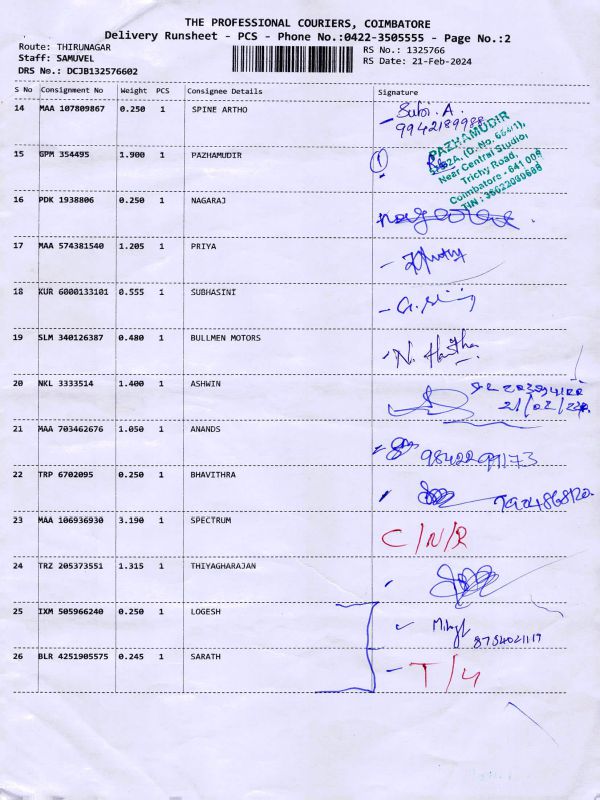 THE PROFESSIONAL COURIERS, COIMBATORE
Delivery Runsheet - PCS - Phone No.:0422-3505555 - Page No.:2
Route: THIRUNAGAR
RS No.: 1325766
Staff: SAMUVEL
RS Date: 21-Feb-2024
DRS No.: DCJB132576602
S No Consignment No Weight PCS Consignee Details Signature
14 MAA 107809867 0.250 1 SPINE ARTHO
Subi. A.
9942189988
15 GPM 354495 1.900 1 PAZHAMUDIR
1
PAZHAMUDIR
(O. No. 664/1),
Near Central Studio,
Trichy Road,
Coimbatore - 641 005
TIN : 33622080688
16 PDK 1938806 0.250 1 NAGARAJ
17 MAA 574381540 1.205 1 PRIYA
18 KUR 6000133101 0.555 1 SUBHASINI
19 SLM 340126387 0.480 1 BULLMEN MOTORS
N. Haritha
20 NKL 3333514 1.400 1 ASHWIN
21/02/24
21 MAA 703462676 1.050 1 ANANDS
9842299173
22 TRP 6702095 0.250 1 BHAVITHRA
23 MAA 106936930 3.190 1 SPECTRUM
C/N/R
24 TRZ 205373551 1.315 1 THIYAGHARAJAN
25 IXM 505966240 0.250 1 LOGESH
8754021119
26 BLR 4251905575 0.245 1 SARATH
T/4